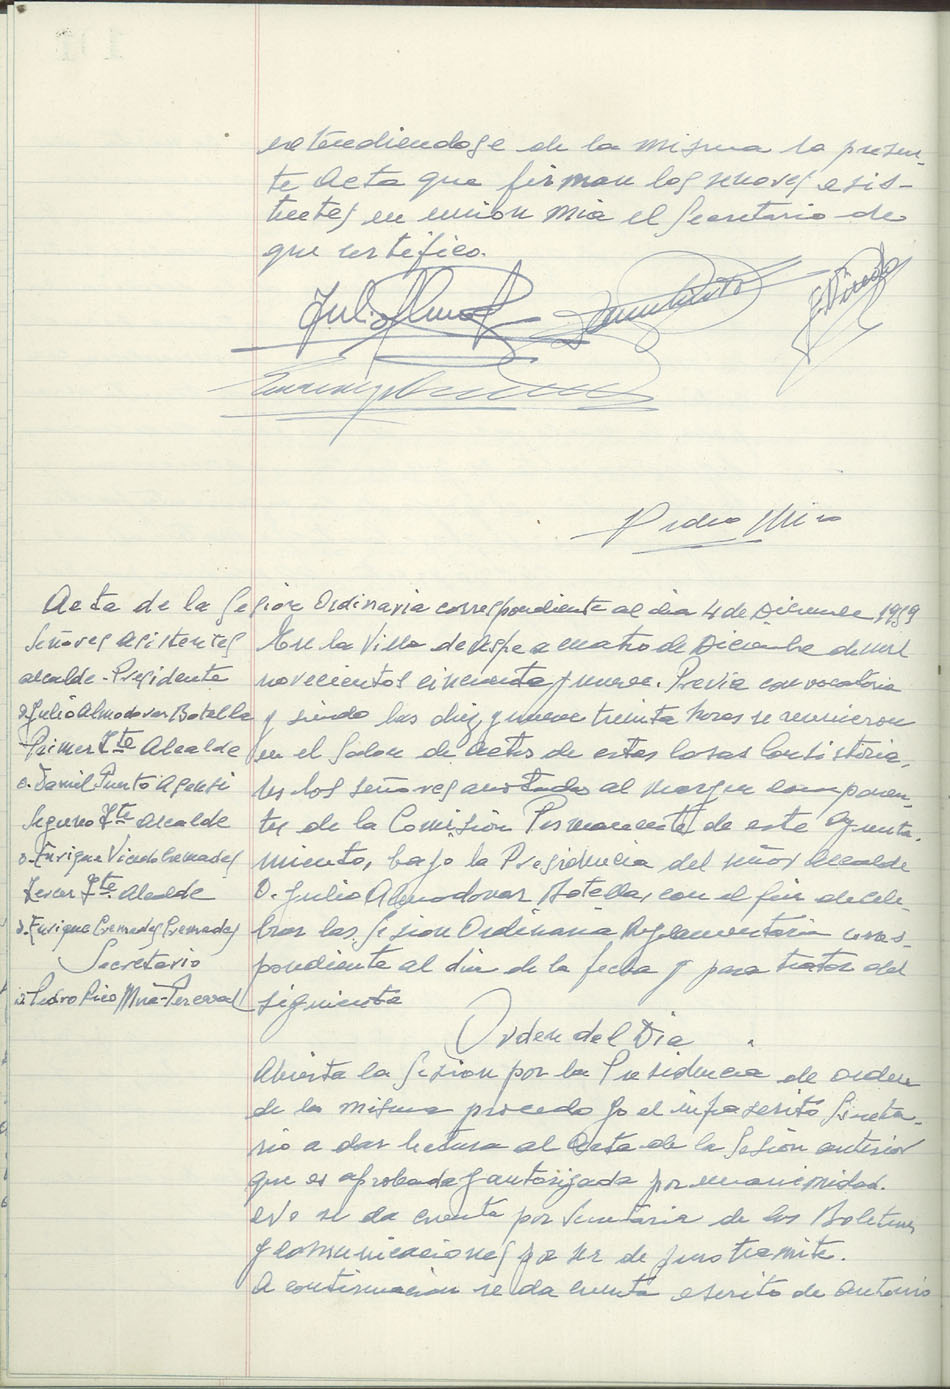 extendiendose de la misma la presen-
te Acta que firman los señores asis-
tentes en union mia el Secretario de
que certifico.
Pedro Miro
Acta de la Sesion Ordinaria correspondiente al dia 4 de Diciembre 1959
Señores asistentes
alcalde-Presidente
D. Julio Almodovar Botella
Primer Tte Alcalde
D. Damil Punto
Segundo Tte alcalde
D. Enrique Vicedo Cremades
Tercer Tte Alcalde
D. Enrique Cremades Cremades
Secretario
D. Pedro Pico Miró-Perceval
En la Villa de Aspe a cuatro de Diciembre de mil
novecientos cincuenta y nueve. Previa convocatoria
y siendo las diez y nueve treinta horas se reunieron
en el Salon de actos de estas Casas Consistoria-
les los señores anotados al margen componen-
tes de la Comisión Permanente de este Ayunta-
miento, bajo la Presidencia del señor Alcalde
D. Julio Almodovar Botella, con el fin de cele-
brar la Sesion Ordinaria Reglamentaria corres-
pondiente al dia de la fecha y para tratar del
siguiente
Orden del Dia
Abierta la Sesion por la Presidencia de orden
de la misma procedo yo el infrascrito Secreta-
rio a dar lectura al Acta de la Sesión anterior
que es aprobada y autorizada por unanimidad.
se da cuenta por Secretaria de los Boletines
y comunicaciones por ser de puro tramite.
A continuacion se da cuenta escrito de Antonio